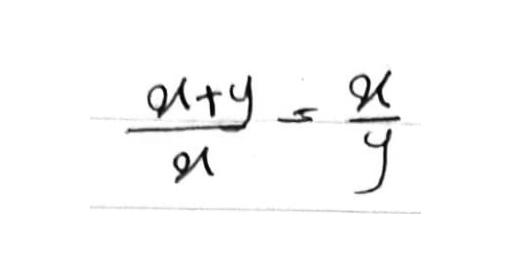 (x+y)/x = x/y